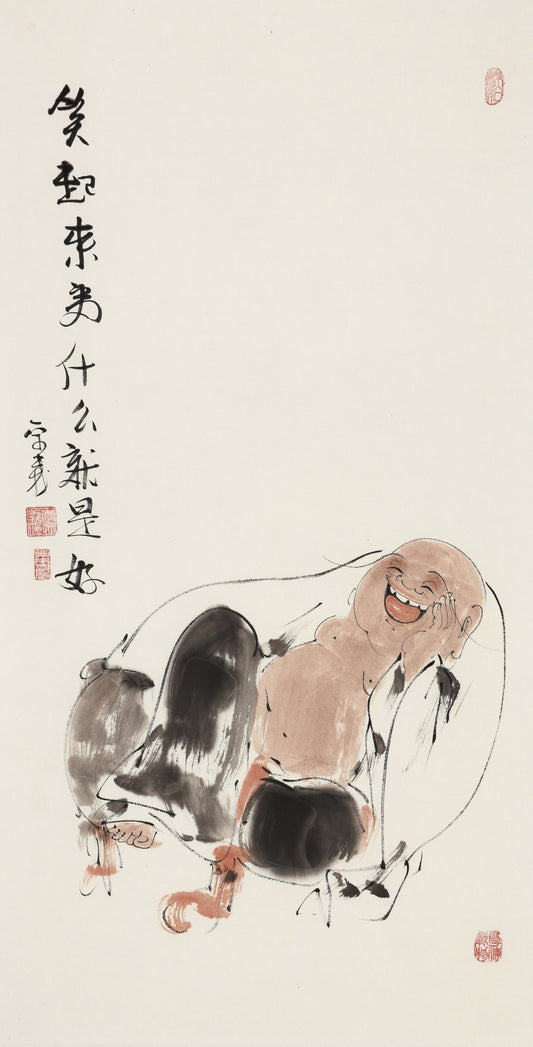 笑起来为什么就是好